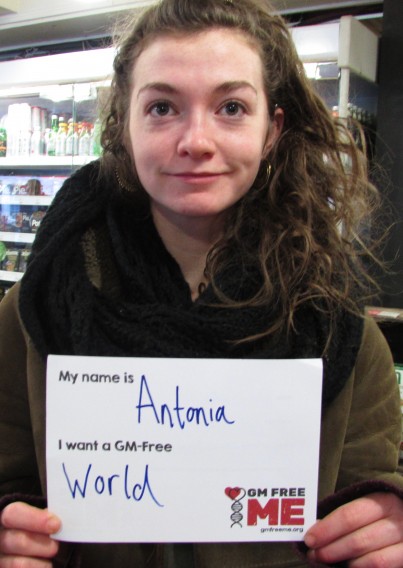 My name is Antonia
I want a GM-Free
World
GM FREE
ME
gmfreeme.org